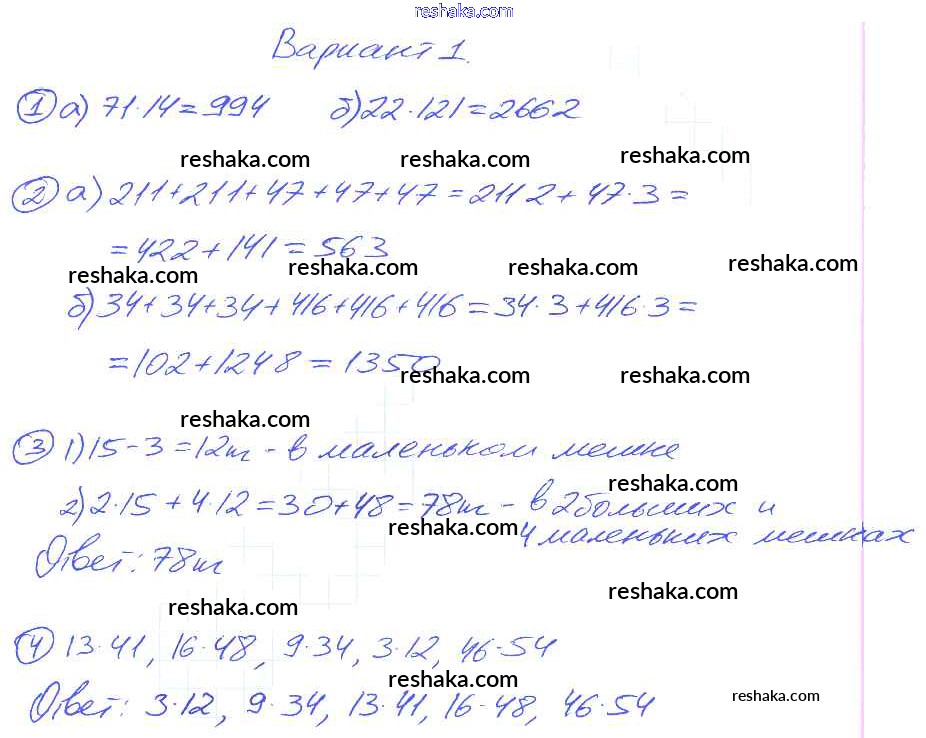 reshaka.com
Вариант 1.
1 а) 71·14=994 б) 22·121=2662
reshaka.com reshaka.com reshaka.com
2 а) 211+211+47+47+47=211·2+47·3=
=422+141=563
reshaka.com reshaka.com reshaka.com reshaka.com
б) 34+34+34+416+416+416=34·3+416·3=
=102+1248=1350
reshaka.com reshaka.com
reshaka.com
3 1) 15-3=12т - в маленьком мешке
reshaka.com
2) 2·15+4·12=30+48=78т - в 2 больших и
reshaka.com
4 маленьких мешках
Ответ: 78т
reshaka.com
reshaka.com
4 13·41, 16·48, 9·34, 3·12, 46·54
reshaka.com
Ответ: 3·12, 9·34, 13·41, 16·48, 46·54
reshaka.com